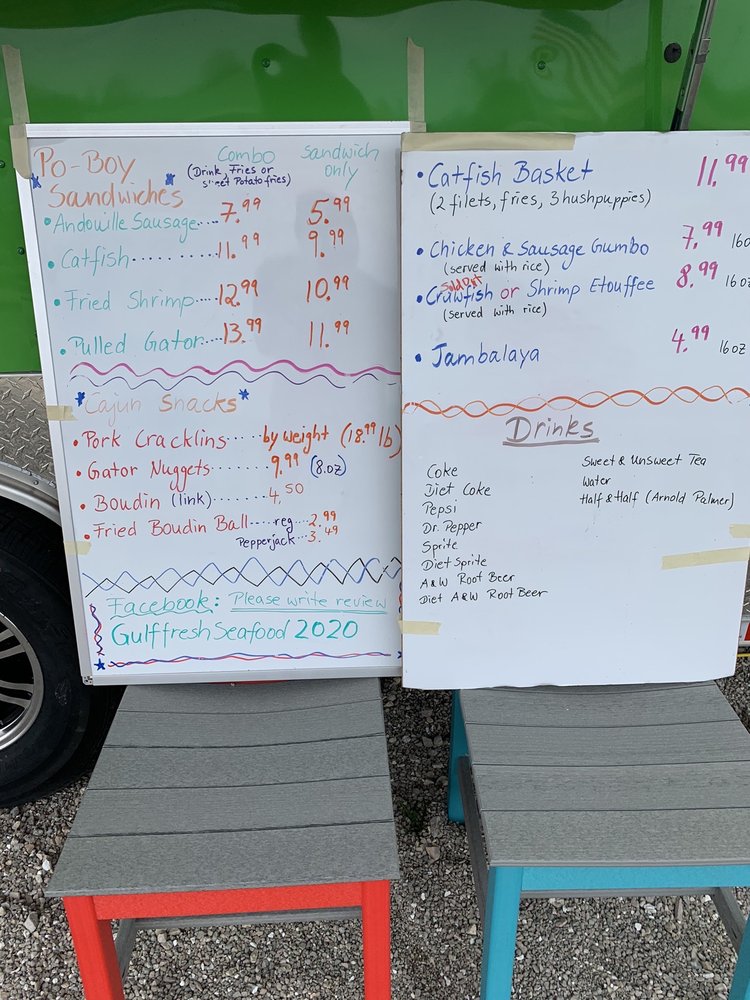 Po-Boy Sandwiches
Combo
(Drink, Fries or
sweet Potato fries)
Sandwich
only
• Andouille Sausage.... 7.99 5.99
• Catfish ......... 11.99 9.99
• Fried Shrimp.... 12.99 10.99
• Pulled Gator.... 13.99 11.99
Cajun Snacks
• Pork Cracklins.... by weight (18.99 lb)
• Gator Nuggets....... 9.99 (8.oz)
• Boudin (link) ....... 4.50
• Fried Boudin Ball.... reg.. 2.99
Pepperjack... 3.49
Facebook: Please write review
GulffreshSeafood 2020
• Catfish Basket 11.99
(2 filets, fries, 3 hushpuppies)
• Chicken & Sausage Gumbo 7.99 16o
(served with rice)
Sold Out
• Crawfish or Shrimp Etouffee 8.99 16oz
(served with rice)
• Jambalaya 4.99 16oz
Drinks
Coke
Diet Coke
Pepsi
Dr. Pepper
Sprite
Diet Sprite
A&W Root Beer
Diet A&W Root Beer
Sweet & Unsweet Tea
Water
Half & Half (Arnold Palmer)